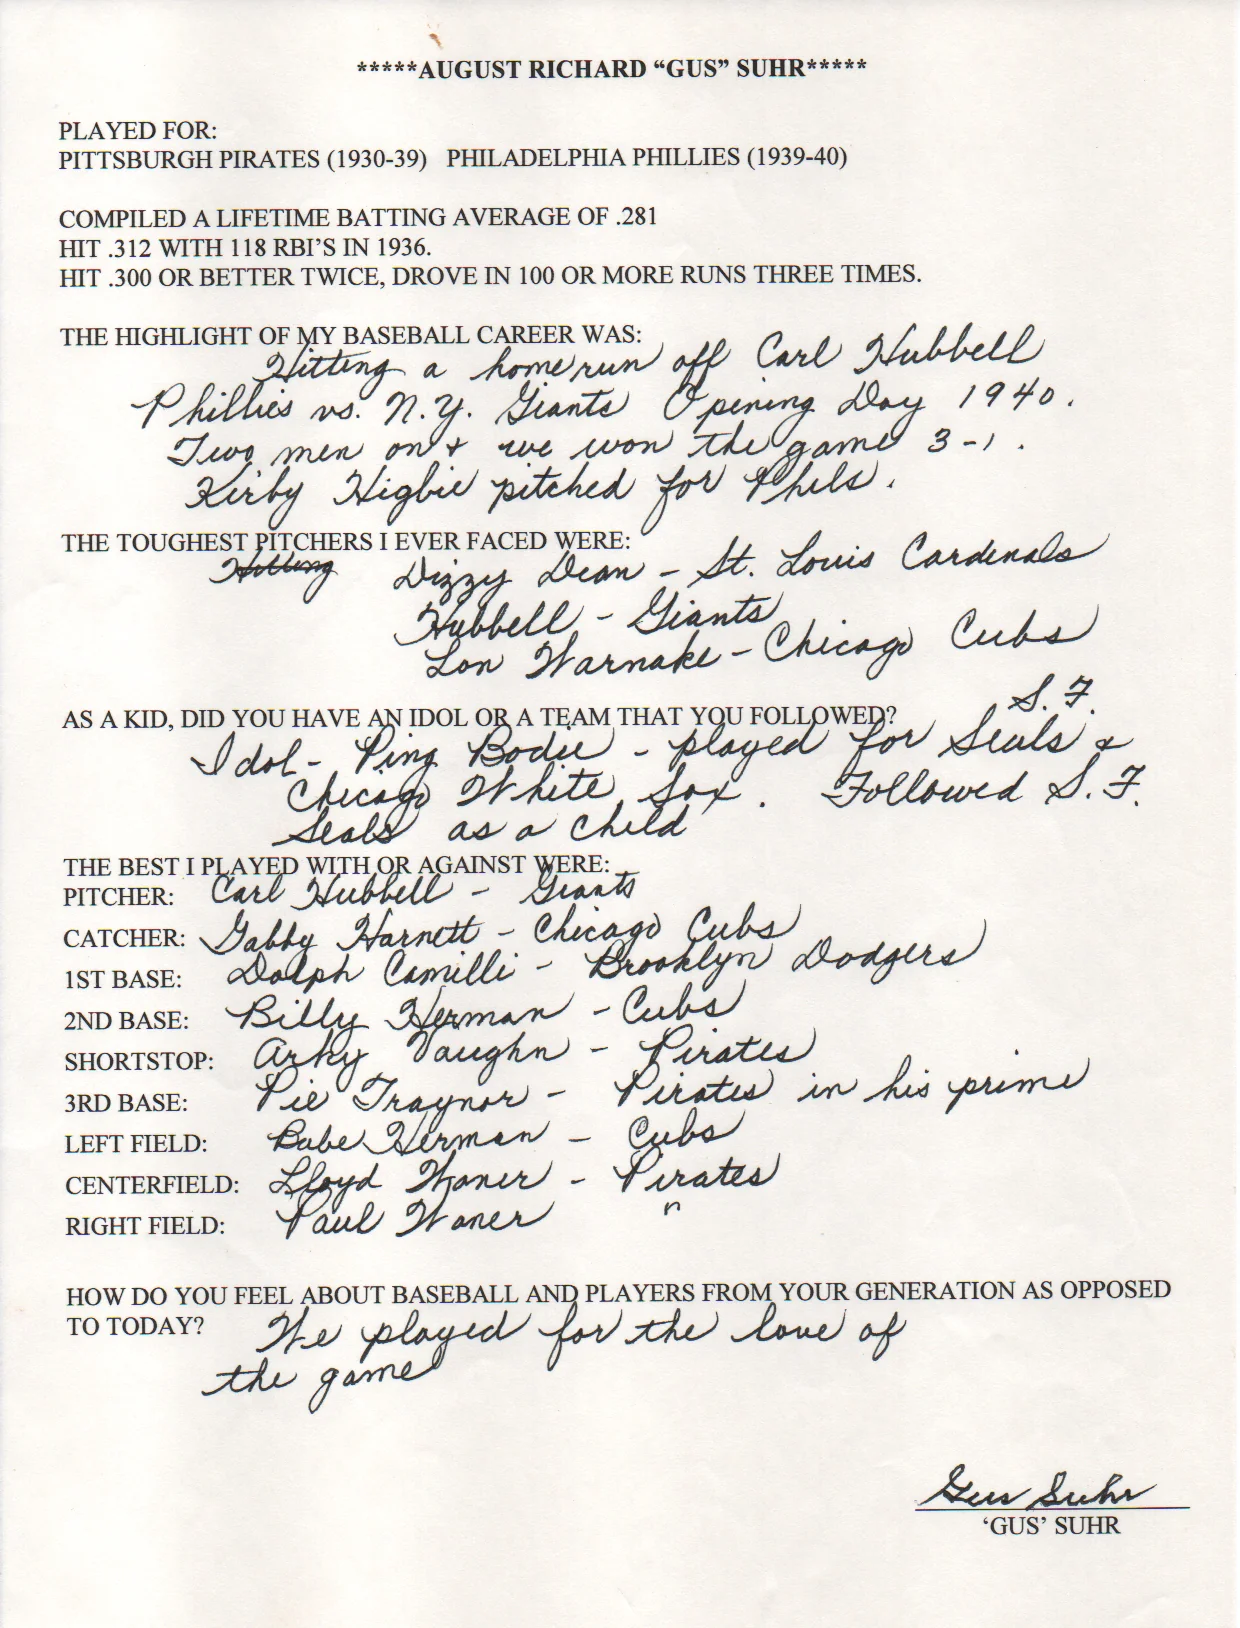 *****AUGUST RICHARD “GUS” SUHR*****
PLAYED FOR:
PITTSBURGH PIRATES (1930-39) PHILADELPHIA PHILLIES (1939-40)
COMPILED A LIFETIME BATTING AVERAGE OF .281
HIT .312 WITH 118 RBI'S IN 1936.
HIT .300 OR BETTER TWICE, DROVE IN 100 OR MORE RUNS THREE TIMES.
THE HIGHLIGHT OF MY BASEBALL CAREER WAS:
Hitting a home run off Carl Hubbell
Phillies vs. N.Y. Giants Opening Day 1940.
Two men on & we won the game 3-1.
Kirby Higbie pitched for Phils.
THE TOUGHEST PITCHERS I EVER FACED WERE:
Hitting Dizzy Dean - St. Louis Cardenals
Hubbell - Giants
Lon Warnake - Chicago Cubs
AS A KID, DID YOU HAVE AN IDOL OR A TEAM THAT YOU FOLLOWED? S.F.
Idol - Ping Bodie - played for Seals &
Chicago White Sox. Followed S.F.
Seals as a child
THE BEST I PLAYED WITH OR AGAINST WERE:
PITCHER: Carl Hubbell - Giants
CATCHER: Gabby Harnett - Chicago Cubs
1ST BASE: Dolph Camilli - Brooklyn Dodgers
2ND BASE: Billy Herman - Cubs
SHORTSTOP: Arky Vaughn - Pirates
3RD BASE: Pie Traynor - Pirates in his prime
LEFT FIELD: Babe Herman - Cubs
CENTERFIELD: Lloyd Waner - Pirates
RIGHT FIELD: Paul Waner "
HOW DO YOU FEEL ABOUT BASEBALL AND PLAYERS FROM YOUR GENERATION AS OPPOSED
TO TODAY? We played for the love of
the game
Gus Suhr
‘GUS’ SUHR